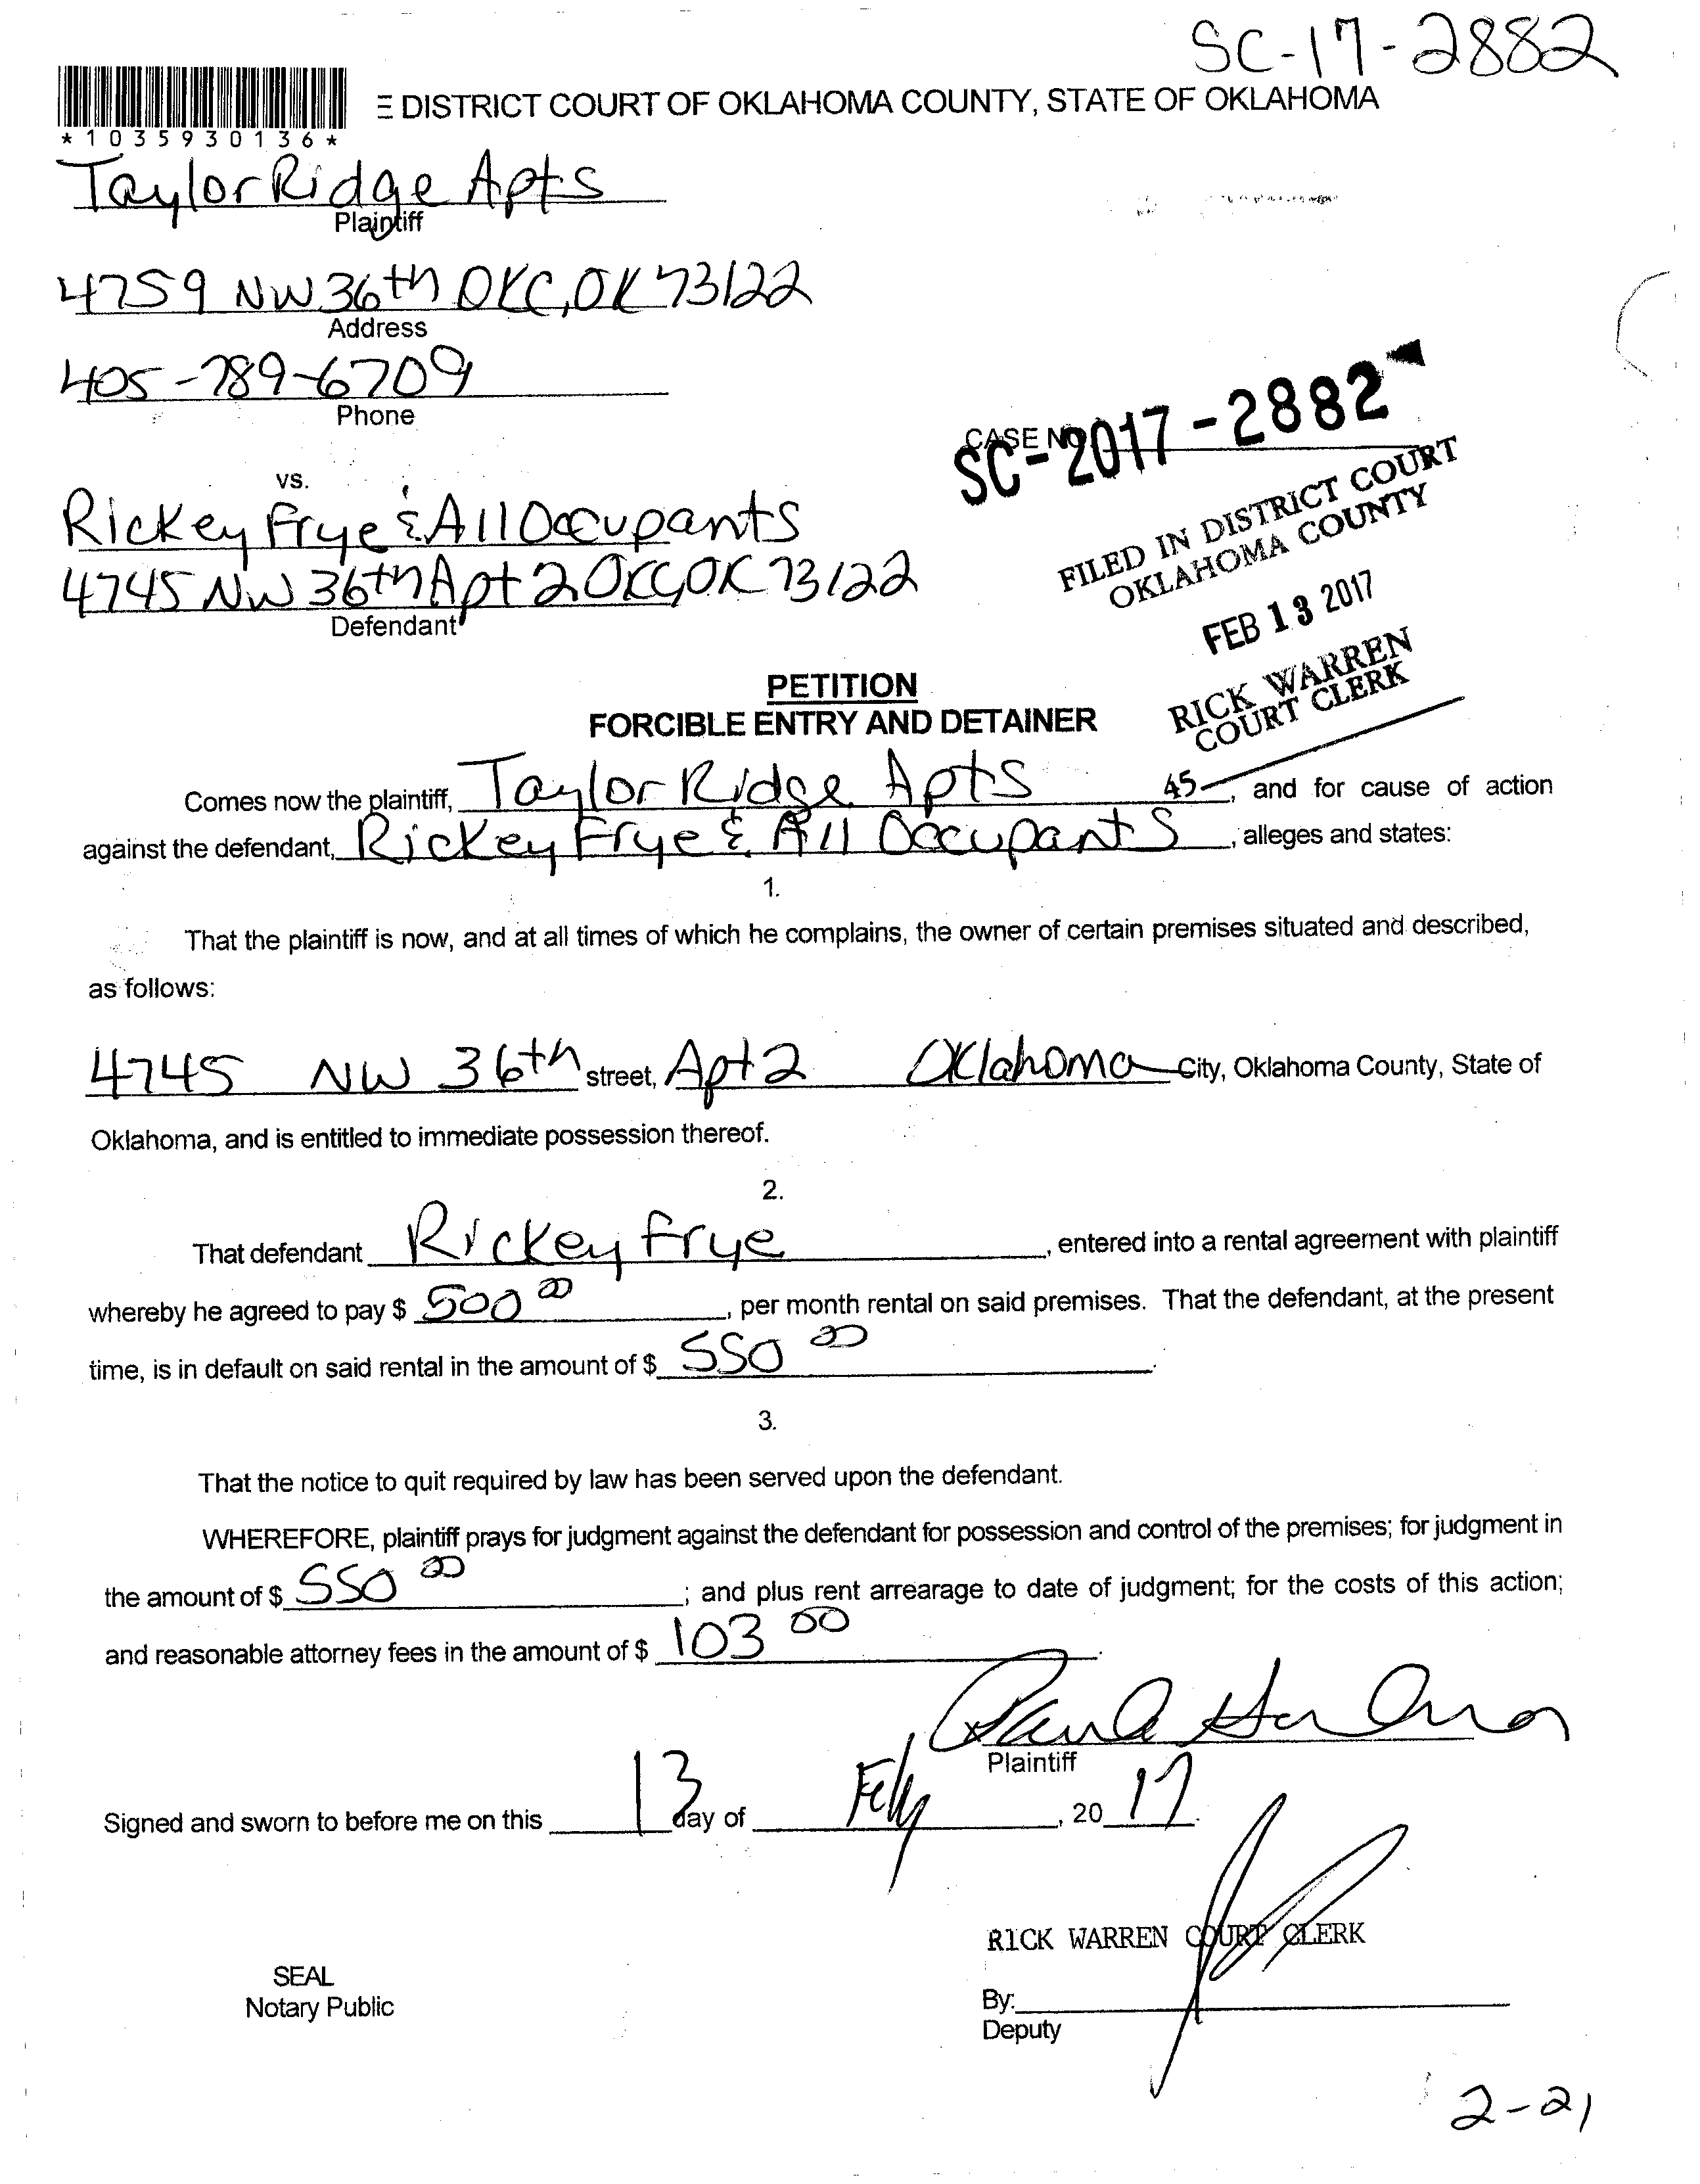 SC-17-2882
E DISTRICT COURT OF OKLAHOMA COUNTY, STATE OF OKLAHOMA
*1035930136*
Taylor Ridge Apts
Plaintiff
4759 NW 36th OKC, OK 73122
Address
405-789-6709
Phone
CASE NO.
SC-2017-2882
vs.
Rickey Frye & All Occupants
4745 NW 36th Apt 2 OKC, OK 73122
Defendant
FILED IN DISTRICT COURT
OKLAHOMA COUNTY
FEB 13 2017
RICK WARREN
COURT CLERK
45
PETITION
FORCIBLE ENTRY AND DETAINER
Comes now the plaintiff, Taylor Ridge Apts, and for cause of action
against the defendant, Rickey Frye & All Occupants, alleges and states:
1.
That the plaintiff is now, and at all times of which he complains, the owner of certain premises situated and described,
as follows:
4745 NW 36th street, Apt 2 Oklahoma City, Oklahoma County, State of
Oklahoma, and is entitled to immediate possession thereof.
2.
That defendant Rickey Frye, entered into a rental agreement with plaintiff
whereby he agreed to pay $ 500 00, per month rental on said premises. That the defendant, at the present
time, is in default on said rental in the amount of $ 550 00.
3.
That the notice to quit required by law has been served upon the defendant.
WHEREFORE, plaintiff prays for judgment against the defendant for possession and control of the premises; for judgment in
the amount of $ 550 00; and plus rent arrearage to date of judgment; for the costs of this action;
and reasonable attorney fees in the amount of $ 103 00.
Plaintiff
Signed and sworn to before me on this 13 day of Feb, 20 17.
RICK WARREN COURT CLERK
SEAL
Notary Public
By:
Deputy
2-21